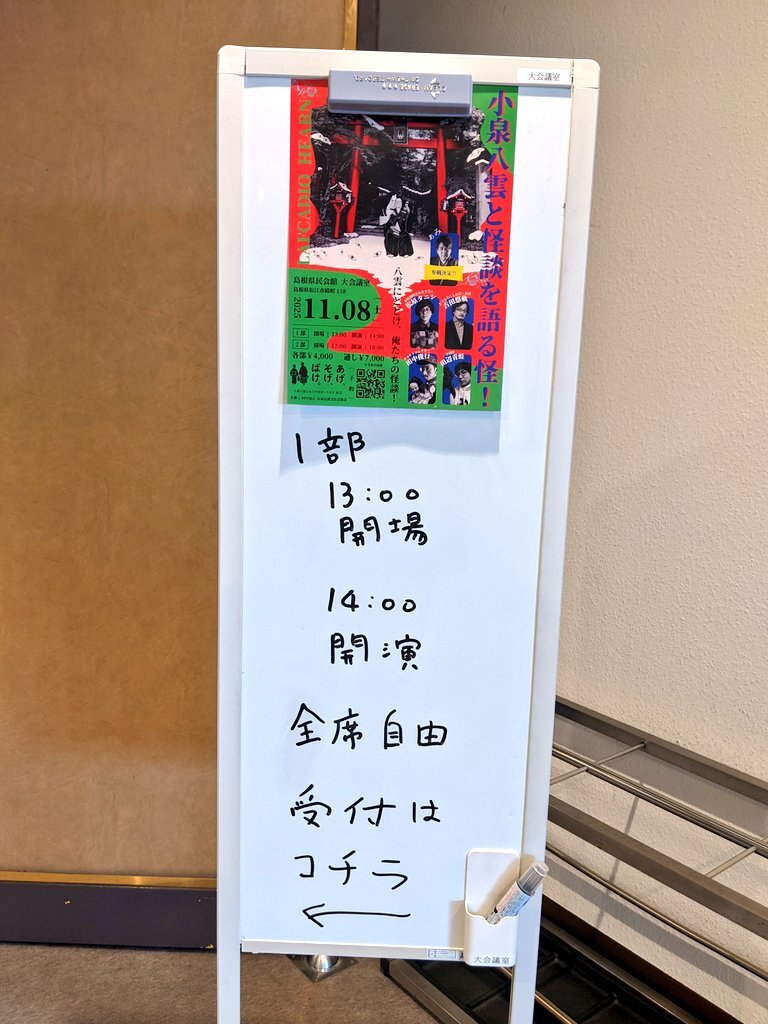 大会議室
小泉八雲と怪談を語る怪!
LAFCADIO HEARN
参戦決定!!
八雲にとどけ、俺たちの怪談!
島根県民会館 大会議室
島根県松江市殿町 158
2025
11.08 土
1部 開場 13:00 開演 14:00
2部 開場 17:00 開演 18:00
各部¥4,000 通し¥7,000
あげ、
そげ、
ばけ。
予約
松原タニシ
吉田悠軌
田中俊行
田辺青蛙
1部
13:00
開場
14:00
開演
全席自由
受付は
コチラ
←
大会議室